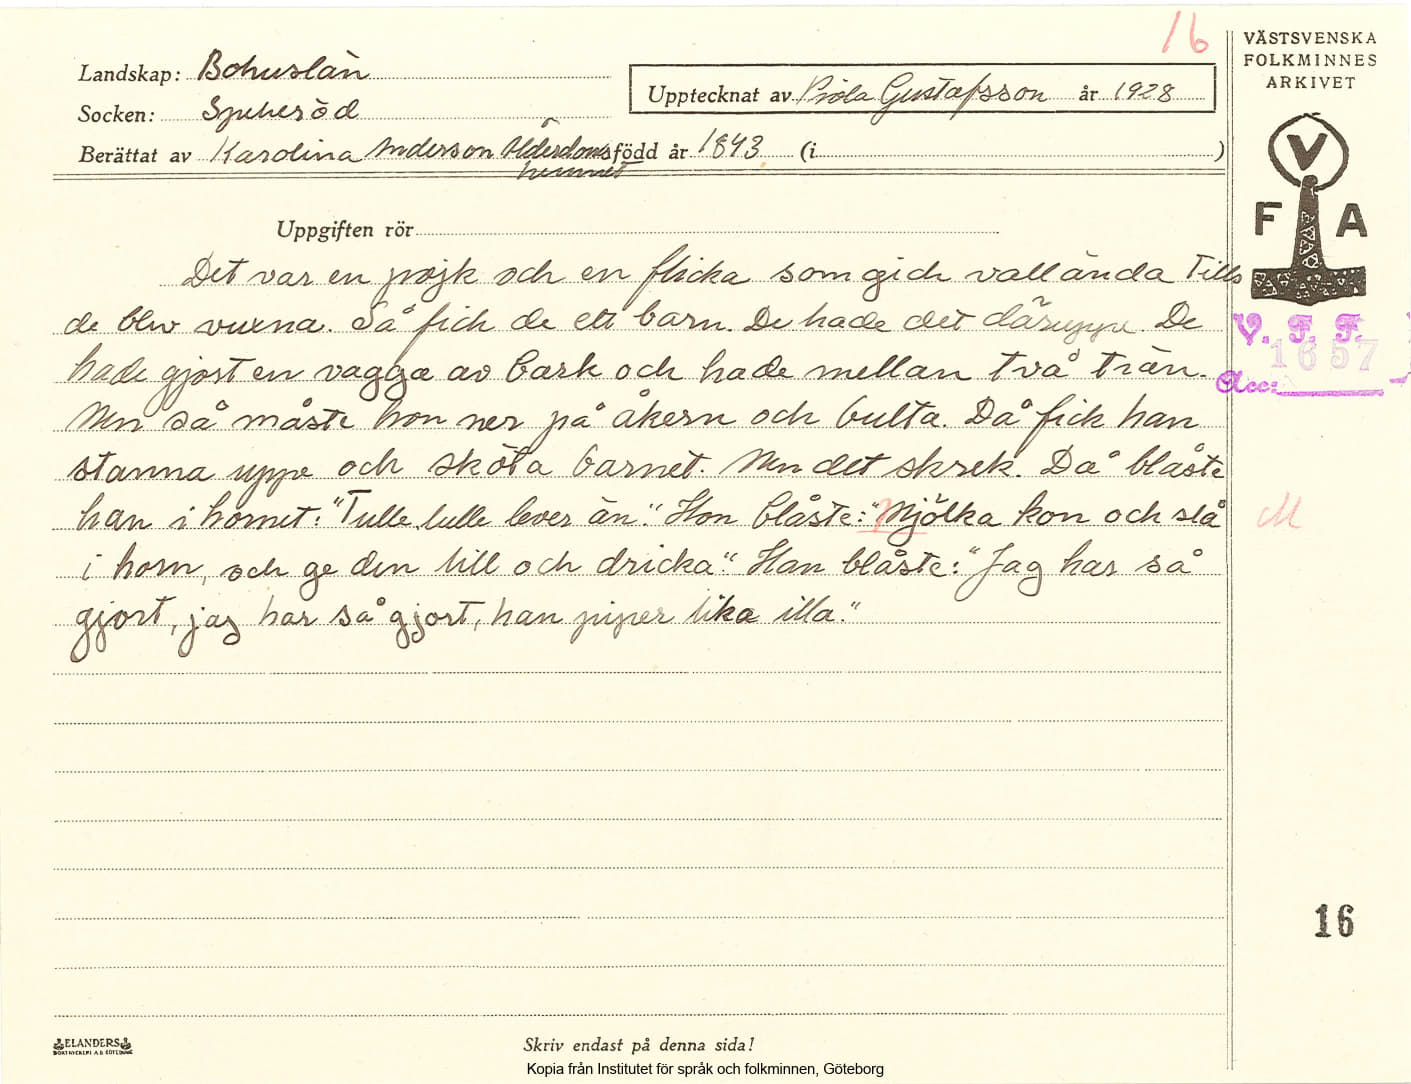 16
VÄSTSVENSKA
FOLKMINNES
ARKIVET
Landskap: Bohuslän
Upptecknat av Viola Gustafsson år 1928
Socken: Spekeröd
Berättat av Karolina Anderson Ålderdoms född år 1843 (i )
hemmet
V
F A
Uppgiften rör
Det var en pojk och en flicka som gick vall ända Tills
de blev vuxna. Så fick de ett barn. De hade det däruppe. De
hade gjort en vagga av bark och hade mellan två trän.
Men så måste hon ner på åkern och bulta. Då fick han
stanna uppe och sköta barnet. Men det skrek. Då blåste
han i hornet: "Tulle, lulle lever än." Hon blåste: "Mjölka kon och slå
i horn, och ge den lill och dricka." Han blåste: "Jag har så
gjort, jag har så gjort, han piper lika illa."
V. F. F.
1657
Acc:
M
16
ELANDERS
BOKTRYCKERI A.B. GÖTEBORG
Skriv endast på denna sida!
Kopia från Institutet för språk och folkminnen, Göteborg